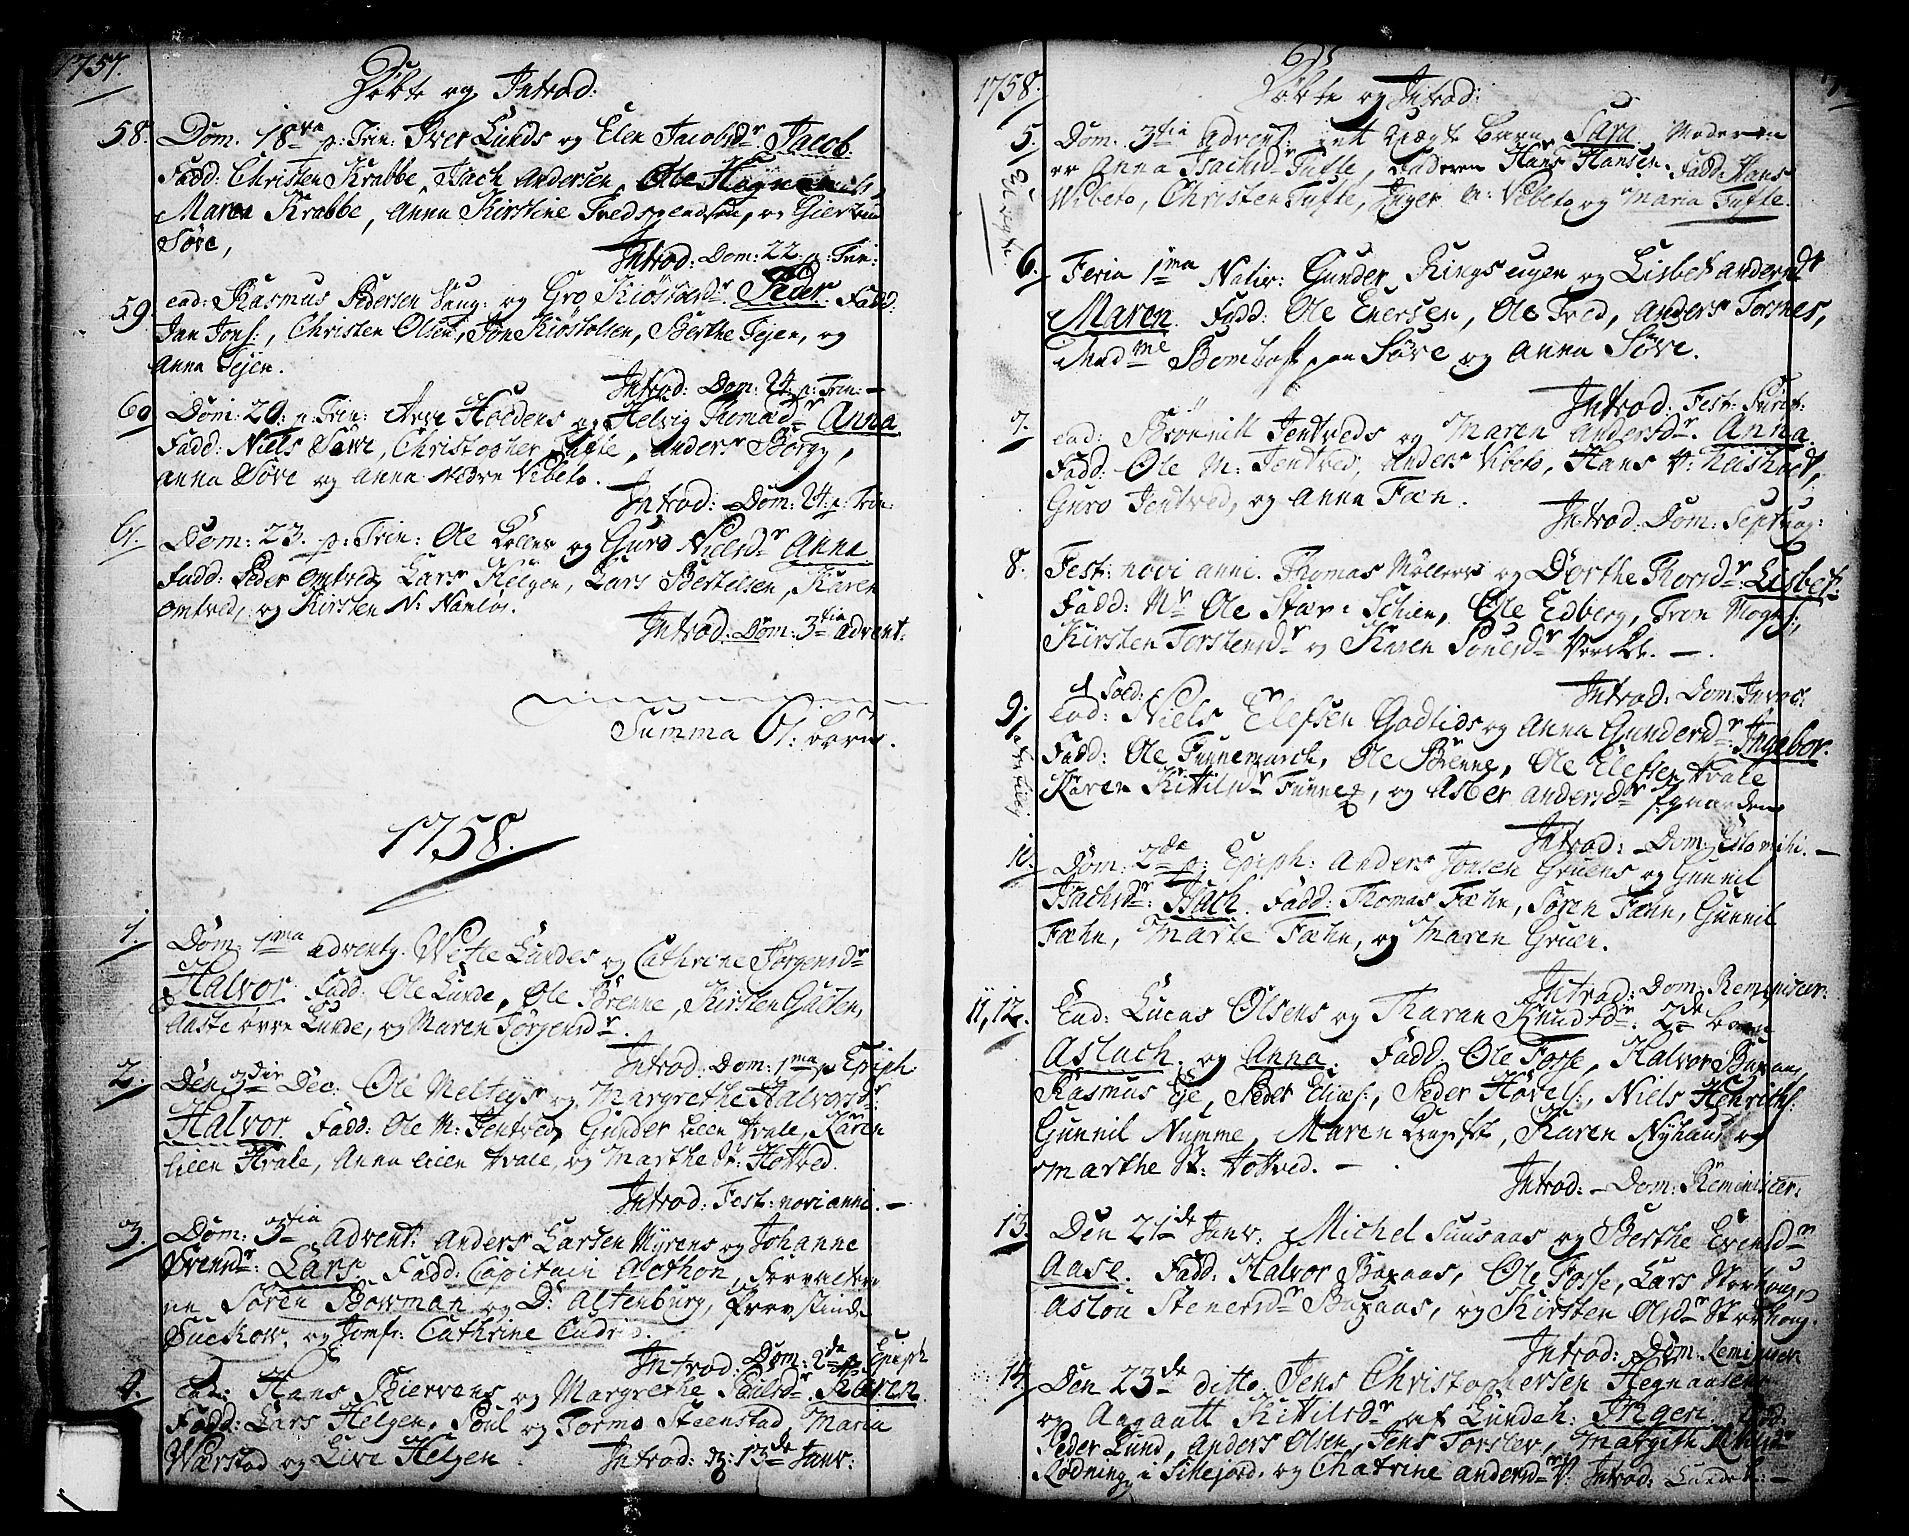 1757.
Döbte og Introd:
58. Dom. 18va p: Trin: Iver Lunds og Elen Jacobsdr Jacob.
Fadd: Christen Krabbe, Isach Andersen, Ole Hegna
Maren Krabbe, Anna Kirstine Tredspendsen, og Giertrud
Söve,
Introd: Dom: 22. p: Trin:
59. ead: Rasmus Pedersen Haug: og Gro Kiöstolsdr. Peder. Fadd:
Jan Jons:, Christen Olsen, Jon Kiöstolsen, Berthe Tejen, og
Anna Tejen.
Introd: Dom: 24. p: Trin: —
60. Dom: 20. p. Trin: Arve Holdens og Helvig Thomadr Anna
Fadd: Niels Söve, Christopher Tufte, Anders Börgy,
Anna Söve og Anna Nedre Vibeto.
Introd: Dom: 24. p. Trin:
61. Dom: 23. p: Trin: Ole Bölles og Guro Nielsdr Anna
Fadd: Peder Omtved, Lars Helgen, Lars Bertelsen, Karen
Omtved, og Kirsten N: Nanlös.
Introd: Dom: 3tia Advent:
Summa 61: börn.
1758.
1. Dom: 1ma adventy. Wetle Lundes og Cathrine Jörgensdr
Halvor. Fadd: Ole Lunde, Ole Brenne, Kirsten Gaasen,
Aaste övre Lunde, og Maren Jörgensdr.
Introd: Dom: 1ma p Epiph
2. Den 3die Dec: Ole Melteys og Margrethe Halvorsdr:
Halvor. Fadd: Ole M: Jentved, Gunder Lien Hvale, Karen
Lien Hvale, Anna Lien Hvale, og Marthe Sr: Hotved.
Introd: Fest: novi anni. —
3. Dom: 3tia Advent: Anders Larsen Myrens og Johanne
Svendr: Lars Fadd: Capitain Aothon, Forvalter
ne Sören Bowman og D: Altenburg, Provstinde
Suckow, og Jomfr: Cathrine
Introd: Dom: 2da p Epiph
4. ead: Hans Bierrens og Margrethe Poulsdr Karen.
Fadd: Lars Helgen, Poul og Tormo Steenstad, Maria
Wærstad og Live Helgen. Introd: d: 13de Janv:
1758.
Döbte og Introd:
5. Dom: 3tia Advent: et uægte barn Sara Moderen
er Anna Isachsdr Tufte, Faderen Hans Hansen. Fadd: Hans
Vibeto, Christen Tufte, Inger N: Vibeto og Maria Tufte
6. Feria 1ma Nativ: Gunder Ringseugen og Lisbet Andersdr
Maren. Fadd: Ole Enersen, Ole Tved, Anders Tornes,
Madme Bomhoff paa Söve og Anna Söve.
Introd: Fest: Purif:
7. ead: Brönnill Jentveds og Maren Andersdr. Anna.
Fadd: Ole M: Jentved, Anders Vibeto, Hans V:
Guro Jentved, og Anna Fæn.
Introd. Dom: Septuag:
8. Fest: novi anni. Thomas Möllers og Dorthe Rorsdr Lisbet.
Fadd: Mr Ole Stær i Schien, Ole Edberg, Tron Mogns:,
Kirsten Torstensdr og Karen Ponesdr Værcket. —.
Introd: Dom: Invoc:
9. Ead: Sold: Niels Elefsen Godtids og Anna Gundersdr: Ingebor.
Fadd: Ole Funnemarch, Ole Brenne, Ole Elefsen Hvale
Karen Kittilsdr Funne, og Asber Andersdr
Introd: Dom: Esto mihi. —
10. Dom: 2da p: Epiph: Anders Jonsen Gruens og Gunnil
Isachsdr: Isach. Fadd: Thomas Fæhn, Sören Fæhn, Gunnil
Fæhn, Marte Fæhn, og Maren Gruen.
Introd: Dom: Reminiscer:
11, 12. Ead: Lucas Olsens og Tharan Knudsdr: 2de börn
Aslach og Anna. Fadd: Ole Fosse, Halvor Buxaas,
Rasmus Eje, Peder Elias:, Peder Hövels:, Niels Henrichs:
Gunnil Numme, Maren Bragest, Karen Nyhaus og
Marthe St: Hotved. —
Introd: Dom: Reminiscer:
13. Den 21de Janv: Michel Suusaas og Berthe Evensdr
Aase. Fadd: Halvor Buxaas, Ole Fosse, Lars Storhoug,
Aslou Stenersdr Buxaas, og Kirsten Olsdr Storhoug.
Introd: Dom: Reminiscer:
14. Den 23de ditto Jens Christophersen Hegnaasens
og Aagaatt Kittilsdr af Lundeh: Ingeri. Fadd:
Peder Lund, Anders Olsen, Jens Torslev, Margith
Rodning i Sillejord, og Chatrine Andersdr V: Introd: Lundeh: —